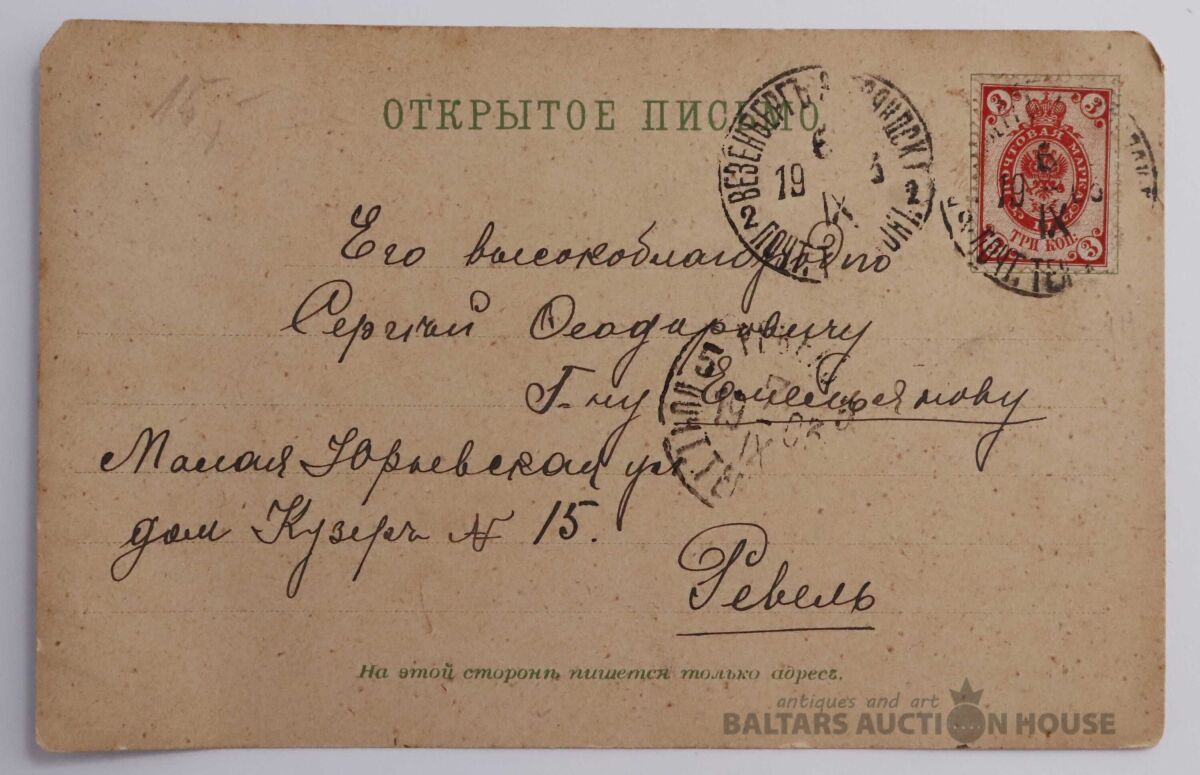 15
ОТКРЫТОЕ ПИСЬМО
ВЕЗЕНБЕРГЪ
19 6 IX
2 2
ПОЧТ.
3 3
ПОЧТОВАЯ МАРКА
ТРИ КОП.
3
19 IX
ПОЧТ. ТЕЛ
Его высокоблагородію
Сергѣй Ѳеодоровичу
Г-ну Емельянову
Малая Юрьевская ул
дом Кузеръ № 15.
Ревель
5
19
IX 03
На этой сторонѣ пишется только адресъ.
antiques and art
BALTARS AUCTION HOUSE